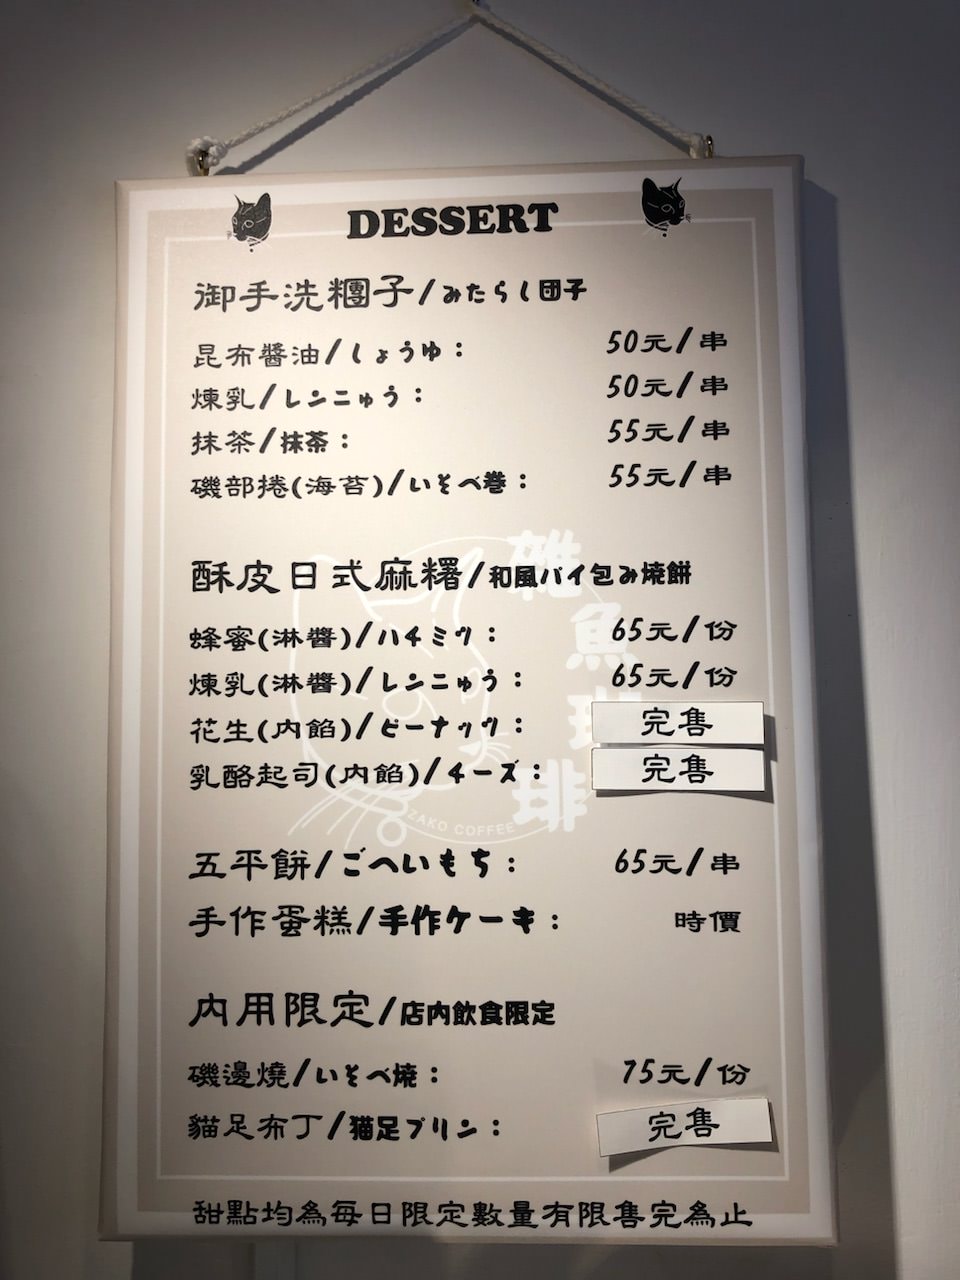 DESSERT
御手洗糰子/みたらし団子
昆布醬油/しょうゆ： 50元/串
煉乳/レンニゅう： 50元/串
抹茶/抹茶： 55元/串
磯部捲(海苔)/いそべ巻： 55元/串
酥皮日式麻糬/和風パイ包み焼餅
蜂蜜(淋醬)/ハチミツ： 65元/份
煉乳(淋醬)/レンニゅう： 65元/份
花生(内餡)/ピーナッツ： 完售
乳酪起司(内餡)/チーズ： 完售
雑魚琲琲
ZAKO COFFEE
五平餅/ごへいもち： 65元/串
手作蛋糕/手作ケーキ： 時價
内用限定/店内飲食限定
磯邊燒/いそべ焼： 75元/份
貓足布丁/猫足プリン： 完售
甜點均為每日限定數量有限售完為止